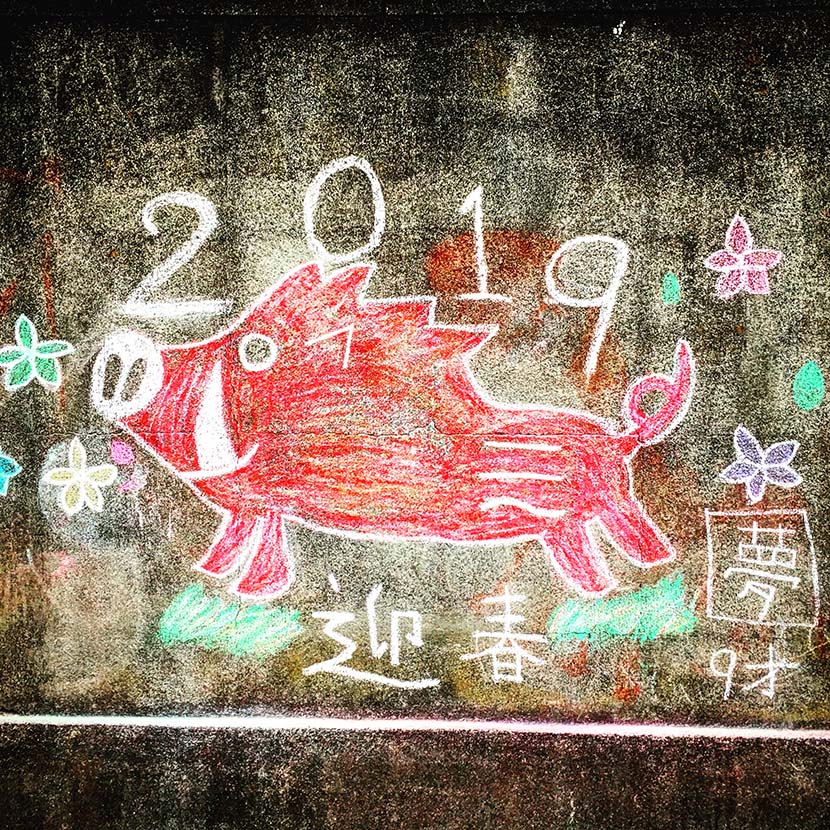 2019
迎春
夢
9才